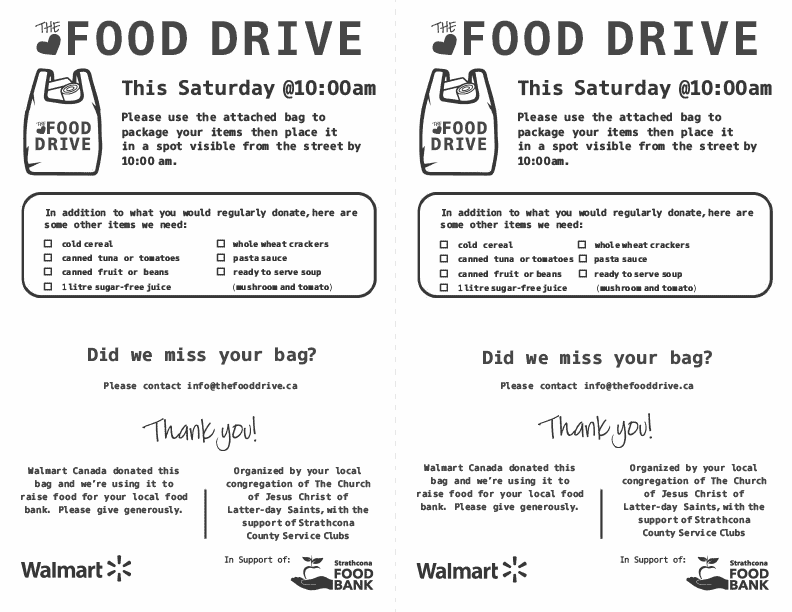 THE
FOOD DRIVE
This Saturday @10:00am
THE
FOOD
DRIVE
Please use the attached bag to
package your items then place it
in a spot visible from the street by
10:00 am.
In addition to what you would regularly donate, here are
some other items we need:
cold cereal
canned tuna or tomatoes
canned fruit or beans
1 litre sugar-free juice
whole wheat crackers
pasta sauce
ready to serve soup
(mushroom and tomato)
Did we miss your bag?
Please contact info@thefooddrive.ca
Thank you!
Walmart Canada donated this
bag and we're using it to
raise food for your local food
bank. Please give generously.
Organized by your local
congregation of The Church
of Jesus Christ of
Latter-day Saints, with the
support of Strathcona
County Service Clubs
Walmart
In Support of:
Strathcona
FOOD
BANK
THE
FOOD DRIVE
This Saturday @10:00am
THE
FOOD
DRIVE
Please use the attached bag to
package your items then place it
in a spot visible from the street by
10:00am.
In addition to what you would regularly donate, here are
some other items we need:
cold cereal
canned tuna or tomatoes
canned fruit or beans
1 litre sugar-free juice
whole wheat crackers
pasta sauce
ready to serve soup
(mushroom and tomato)
Did we miss your bag?
Please contact info@thefooddrive.ca
Thank you!
Walmart Canada donated this
bag and we're using it to
raise food for your local food
bank. Please give generously.
Organized by your local
congregation of The Church
of Jesus Christ of
Latter-day Saints, with the
support of Strathcona
County Service Clubs
Walmart
In Support of:
Strathcona
FOOD
BANK